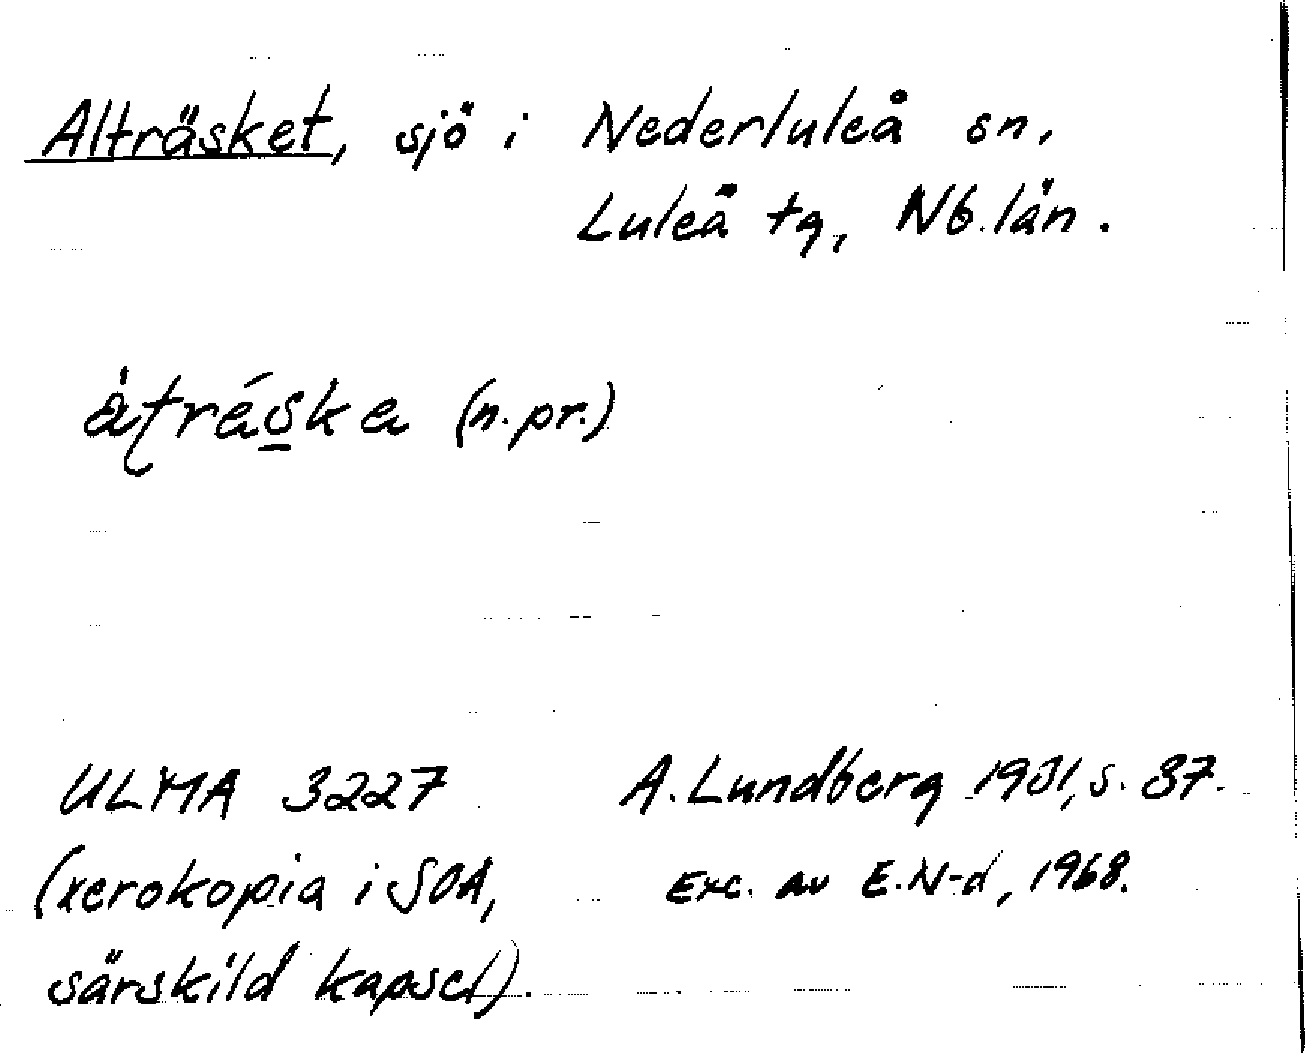 Alträsket, sjö i Nederluleå sn,
Luleå tg, Nb. län.
àtráska (n.pr.)
ULMA 3227 A. Lundberg 1931, s. 37.
(xerokopia i SOA, Exc. av E.N-d, 1968.
särskild kapsel).